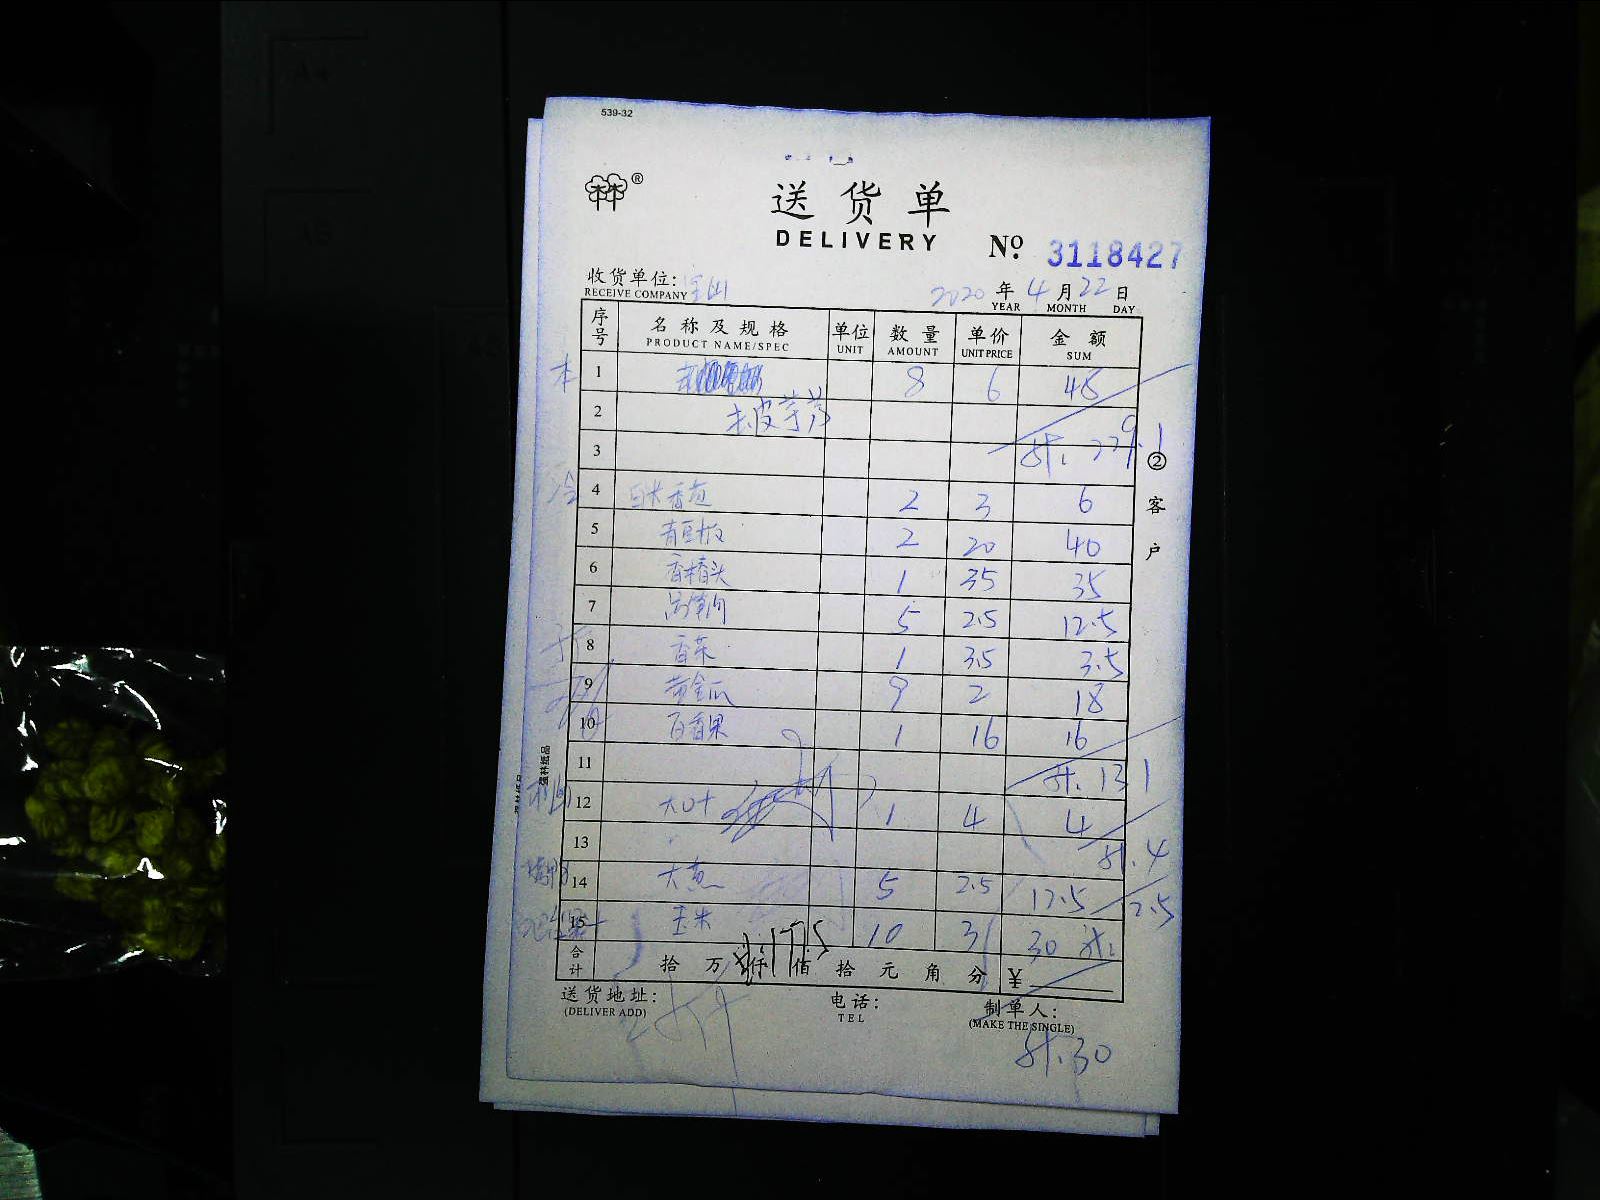 539-32
送货单
DELIVERY
No. 3118427
收货单位:
RECEIVE COMPANY
2020 年 4 月 22 日
YEAR MONTH DAY
序号 名称及规格 单位 数量 单价 金额
PRODUCT NAME/SPEC UNIT AMOUNT UNIT PRICE SUM
本 1 8 6 48
2 去皮芋艿
3 计. 229.1
冷 4 2 3 6
5 青豆板 2 20 40
6 香椿头 1 35 35
7 5 2.5 12.5
8 香菜 1 3.5 3.5
9 黄金瓜 9 2 18
10 百香果 1 16 16
11 计. 131
12 大叶 1 4 4
13 计. 4
14 大葱 5 2.5 12.5
15 玉米 10 3 30 计.
合计 拾 万 仟 佰 拾 元 角 分 ¥
计.177.5
送货地址: 电话: 制单人:
(DELIVER ADD) TEL (MAKE THE SINGLE)
计.30
②客户
强林纸品